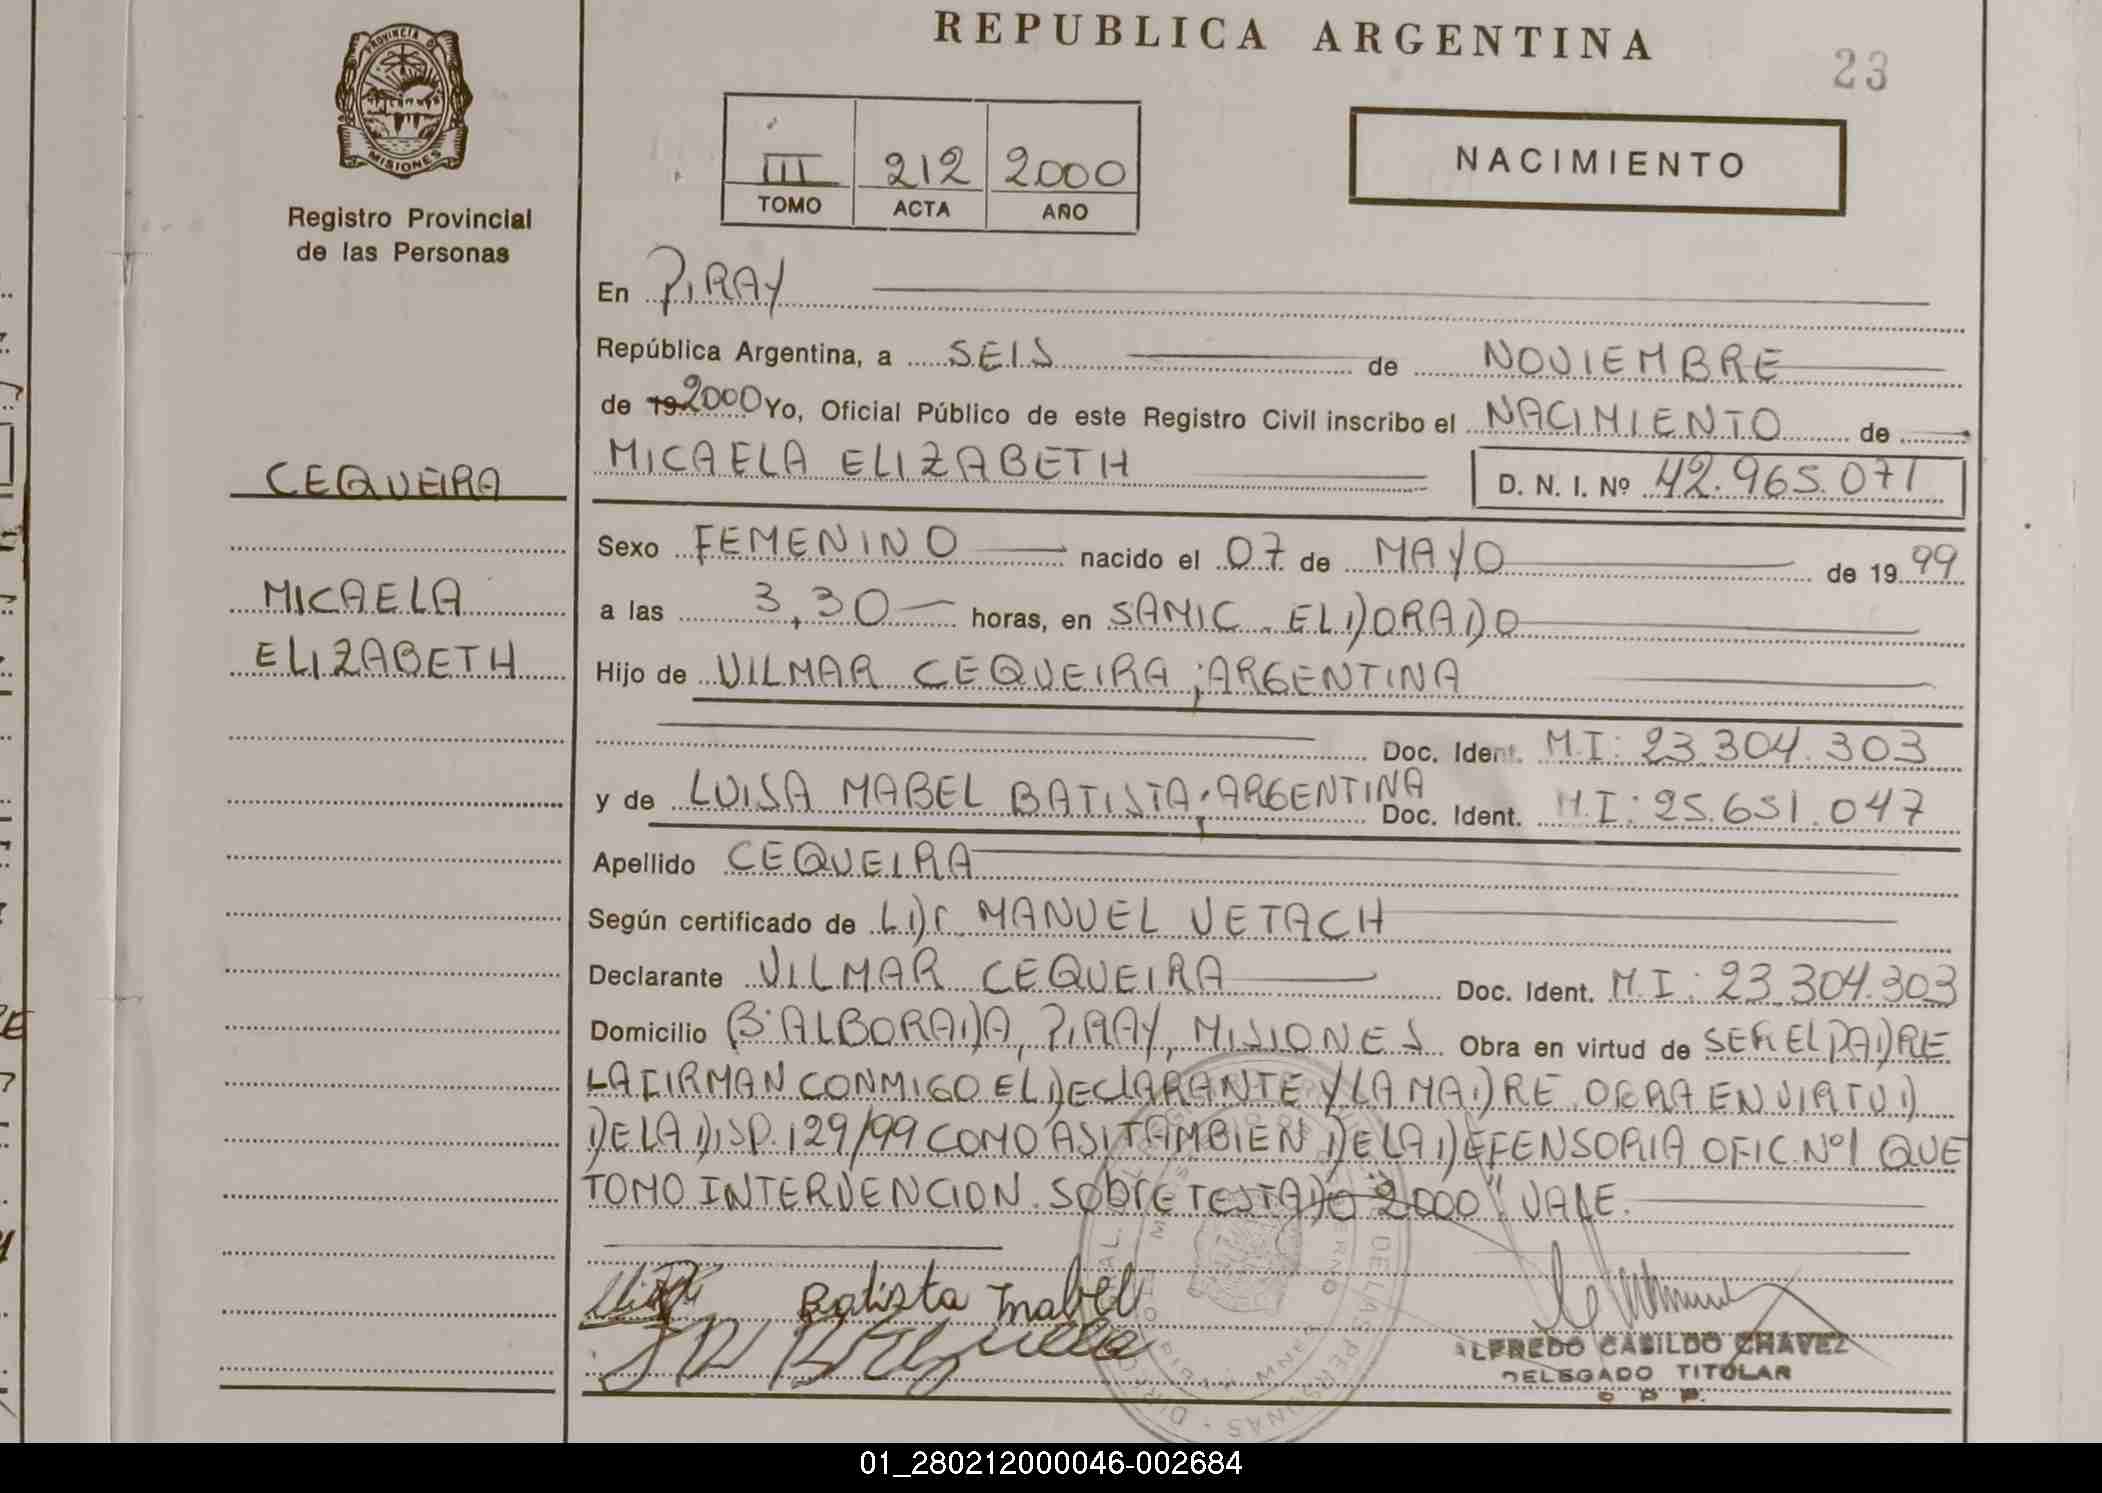 REPUBLICA ARGENTINA
23
PROVINCIA DE
MISIONES
Registro Provincial
de las Personas
III 212 2000
TOMO ACTA AÑO
NACIMIENTO
En PIRAY
República Argentina, a SEIS de NOVIEMBRE
de 19 2000 Yo, Oficial Público de este Registro Civil inscribo el NACIMIENTO de
MICAELA ELIZABETH D. N. I. Nº 42.965.071
CEQUEIRA
MICAELA
ELIZABETH
Sexo FEMENINO nacido el 07 de MAYO de 19 99
a las 3,30 horas, en SAMIC. ELDORADO
Hijo de VILMAR CEQUEIRA; ARGENTINA
Doc. Ident. M.I: 23.304.303
y de LUISA MABEL BATISTA; ARGENTINA Doc. Ident. M.I: 25.651.047
Apellido CEQUEIRA
Según certificado de MANUEL VETACH
Declarante VILMAR CEQUEIRA Doc. Ident. M.I: 23.304.303
Domicilio Bº ALBORADA, PIRAY, MISIONES Obra en virtud de SER EL PADRE
LA FIRMAN CONMIGO EL DECLARANTE Y LA MADRE. OBRA EN VIRTUD
DE LA DISP. 129/99 COMO ASI TAMBIEN DE LA DEFENSORIA OFIC. Nº1 QUE
TOMO INTERVENCION. SOBRE TESTADO "2000" VALE.
Batista Mabel
ALFREDO CASILDO CHAVEZ
DELEGADO TITULAR
01_280212000046-002684